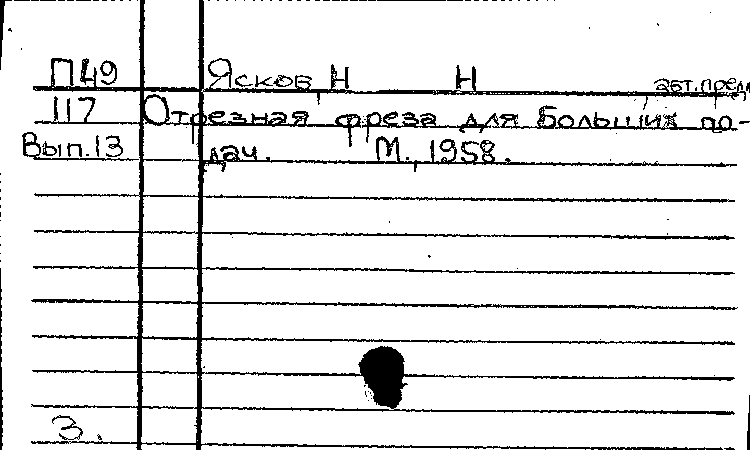 П49 Ясков, Н Н авт.предл
117 Отрезная фреза для больших по-
Вып.13 дач. М., 1958.
3.